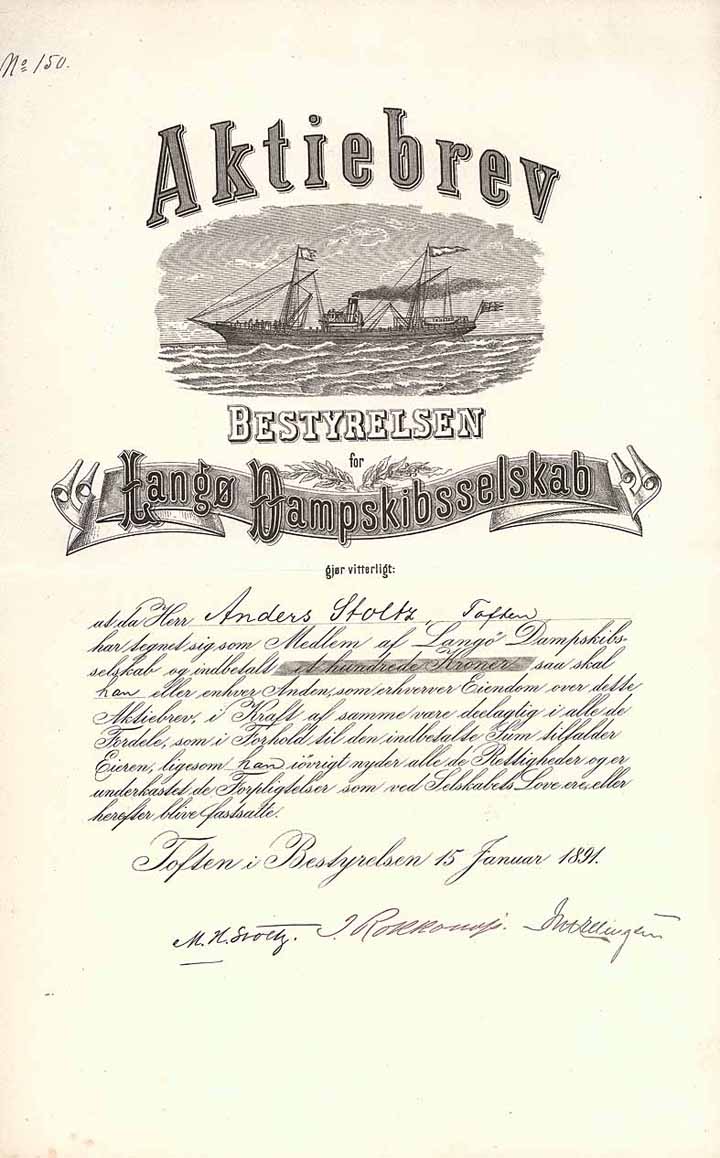 No 150.
Aktiebrev
BESTYRELSEN
for
Langø Dampskibsselskab
gjør vitterligt:
at da Herr Anders Stoltz, Toften
har tegnet sig som Medlem af Langö Dampskibs-
selskab og indbetalt et hundrede Kroner saa skal
han eller enhver Anden, som erhverver Eiendom over dette
Aktiebrev, i Kraft af samme være deelagtig i alle de
Fordele, som i Forhold til den indbetalte Sum tilfalder
Eieren, ligesom han iövrigt nyder alle de Rettigheder og er
underkastet de Forpligtelser som ved Selskabets Love ere, eller
herefter blive fastsatte.
Toften i Bestyrelsen 15 Januar 1891.
M. H. Stoltz.